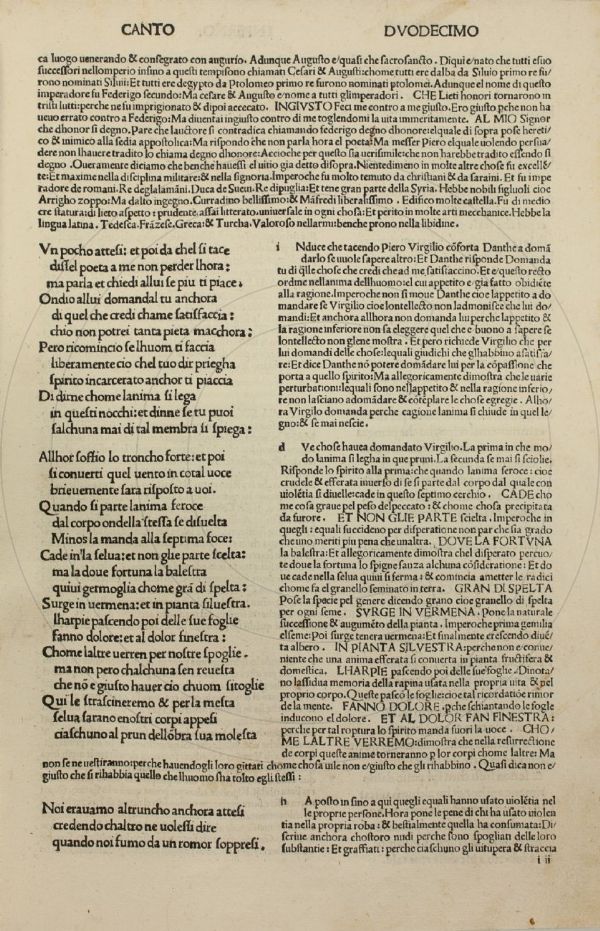 CANTO DVODECIMO
ca luogo uenerando & consegrato con augurio. Adunque Augusto e/quasi che sacrosancto. Diqui e/nato che tutti esuo
successori nellomperio insino a questi tempi sono chiamati Cesari & Augusti: chome tutti ere dalba da Siluio primo re fu
rono nominati Siluii: Et tutti ere degypto da Ptolomeo primo re furono nominati ptolomei. Adunque el nome di questo
imperadore fu Federigo secundo: Ma cesare & Augusto e/nome a tutti glimperadori. CHE Lieti honori tornarono in
tristi lutti: perche ne fu imprigionato & dipoi acceccato. INGIVSTO Feci me contro a me giusto. Ero giusto pehe non ha
ueuo errato contro a Federigo: Ma diuentai ingiusto contro di me toglendomi la uita immeritamente. AL MIO Signor
che dhonor si degno. Pare che lauctore si contradica chiamando federigo degno dhonore: elquale di sopra pose hereti/
co & inimico alla sedia appostolica: Ma rispondo che non parla hora el poeta: Ma messer Piero elquale uolendo persua/
dere non lhauere tradito lo chiama degno dhonore: Accioche per questo sia uerisimile: che non harebbe tradito essendo si
degno. Oueramente diciamo che benche hauessi el uitio gia detto disopra. Nientedimeno in molte altre chose fu excellē
te: Et maxime nella disciplina militare: & nella signoria. Imperoche fu molto temuto da christiani & da saraini. Et fu impe
radore de romani. Re deglalamāni. Duca de Sueui. Re dipuglia: Et tene gran parte della Syria. Hebbe nobili figluoli cioe
Arrigho zoppo: Ma dalto ingegno. Curradino bellissimo: & Māfredi liberalissimo. Edifico molte castella. Fu di medio
cre statura: di lieto aspetto: prudente: assai litterato: uniuersale in ogni chosa: Et perito in molte arti mecchanice. Hebbe la
lingua latina. Tedesca. Frāzese. Greca: & Turcha. Valoroso nellarmi: benche prono nella libidine.
Vn pocho attesi: et poi da chel si tace
disse l poeta a me non perder lhora:
ma parla et chiedi allui se piu ti piace.
Ondio allui domandal tu anchora
di quel che credi chame satisfaccia:
chio non potrei tanta pieta macchora:
Pero ricomincio se lhuom ti faccia
liberamente cio chel tuo dir priegha
spirito incarcerato anchor ti piaccia
Di dirne chome lanima si lega
in questi nocchi: et dinne se tu puoi
salchuna mai di tal membra si spiega:
i Nduce che tacendo Piero Virgilio cōforta Danthe a domā
darlo se uuole sapere altro: Et Danthe risponde Domanda
tu di qlle chose che credi che ad me satisfaccino. Et e/questo recto
ordine nellanima dellhuomo: el cui appetito e/gia fatto obidiēte
alla ragione. Imperoche non si muoue Danthe cioe lappetito a do
mandare se Virgilio cioe lontellecto non ladmonisce che lui do/
mandi: Et anchora allhora non domanda lui perche lappetito &
la ragione inferiore non sa eleggere quel che e buono a sapere se
lontellecto non glene mostra. Et pero richiede Virgilio che per
lui domandi delle chose: lequali giudichi che glhabbino asatisfa/
re: Et dice Danthe nō potere domādare lui per la cōpassione che
porta a quello spirito: Ma allegoricamente dimostra che le uarie
perturbationi: lequali sono nellappetito & nella ragione inferio/
re non lasciano adomādare & cōteplare le chose egregie. Alho/
ra Virgilo domanda perche cagione lanima si chiude in quel le/
gno: & se mai nescie.
Allhor soffio lo troncho forte: et poi
si conuerti quel uento in cotal uoce
brieuemente sara risposto a uoi.
Quando si parte lanima feroce
dal corpo ondella stessa se disuelta
Minos la manda alla septima foce:
Cade in'la selua: et non glie parte scelta:
ma la doue fortuna la balestra
quiui germoglia chome grā di spelta:
Surge in uermena: et in pianta siluestra.
lharpie pascendo poi delle sue foglie
fanno dolore: et al dolor finestra:
Chome laltre uerren per nostre spoglie.
ma non pero chalchuna sen reuesta
che nō e giusto hauer cio chuom sitoglie
Qui le strascineremo & per la mesta
selua sarano enostri corpi appesi
ciaschuno al prun dellōbra sua molesta
d Ve chose hauea domandato Virgilio. La prima in che mo/
do lanima si legha in que pruni. La secunda se mai si sciolie.
Risponde lo spirito alla prima: che quando lanima feroce: cioe
crudele & efferata inuerso di se si parte dal corpo dal quale con
uiolētia si diuelle: cade in questo septimo cerchio. CADE cho
me cosa graue pel peso del peccato: & chome chosa precipitata
da furore. ET NON GLIE PARTE scielta. Imperoche in
quegli: equali succidino per disperatione non par che sia grado
che uno meriti piu pena che unaltra. DOVE LA FORTVNA
la balestra: Et allegoricamente dimostra chel disperato percuo/
te doue la fortuna lo spigne sanza alchuna cōsideratione: Et do
ue cade nella selua quiui si ferma: & comincia ametter le radici
chome fa el granello seminato in terra. GRAN DISPELTA
Pose la specie pel genere dicendo grano cioe granello di spelta
per ogni seme. SVRGE IN VERMENA. Pone la naturale
successione & augumēto della pianta. Imperoche prima gemina
elseme: Poi surge tenera uermena: Et finalmente crescendo diuē/
ta albero. IN PIANTA SILVESTRA: perche non e conue/
niente che una anima efferata si conuerta in pianta fructifera &
domestica. LHARPIE pascendo poi delle sue foglie. Dinota/
no lassidua memoria della rapina usata nella propria uita & nel
proprio corpo. Queste pascō le foglie: cioe tal ricordatiōe rimor
de la mente. FANNO DOLORE. pche schiantando le fogle
inducono el dolore. ET AL DOLOR FAN FINESTRA:
perche per tal roptura lo spirito manda fuori la uoce. CHO/
ME LALTRE VERREMO: dimostra che nella resurrectione
de corpi queste anime torneranno p lor corpi chome laltre: Ma
non se ne uestiranno: perche hauendogli loro gittati chome chosa uile non e/giusto che gli rihabbino. Quasi dica non e/
giusto che si rihabbia quello che lhuomo sha tolto egli stessi:
Noi erauamo altruncho anchora attesi
credendo chaltro ne uolessi dire
quando noi fumo da un romor soppresi.
h A posto in sino a qui quegli equali hanno usato uiolētia nel
le proprie persone. Hora pone le pene di chi ha usato uiolen
tia nella propria roba: & bestialmente quella ha consumata: Di/
scriue anchora chostoro nudi perche sono spogliati delle loro
substantie: Et graffiati: perche ciaschuno gli uitupera & straccia
i ii